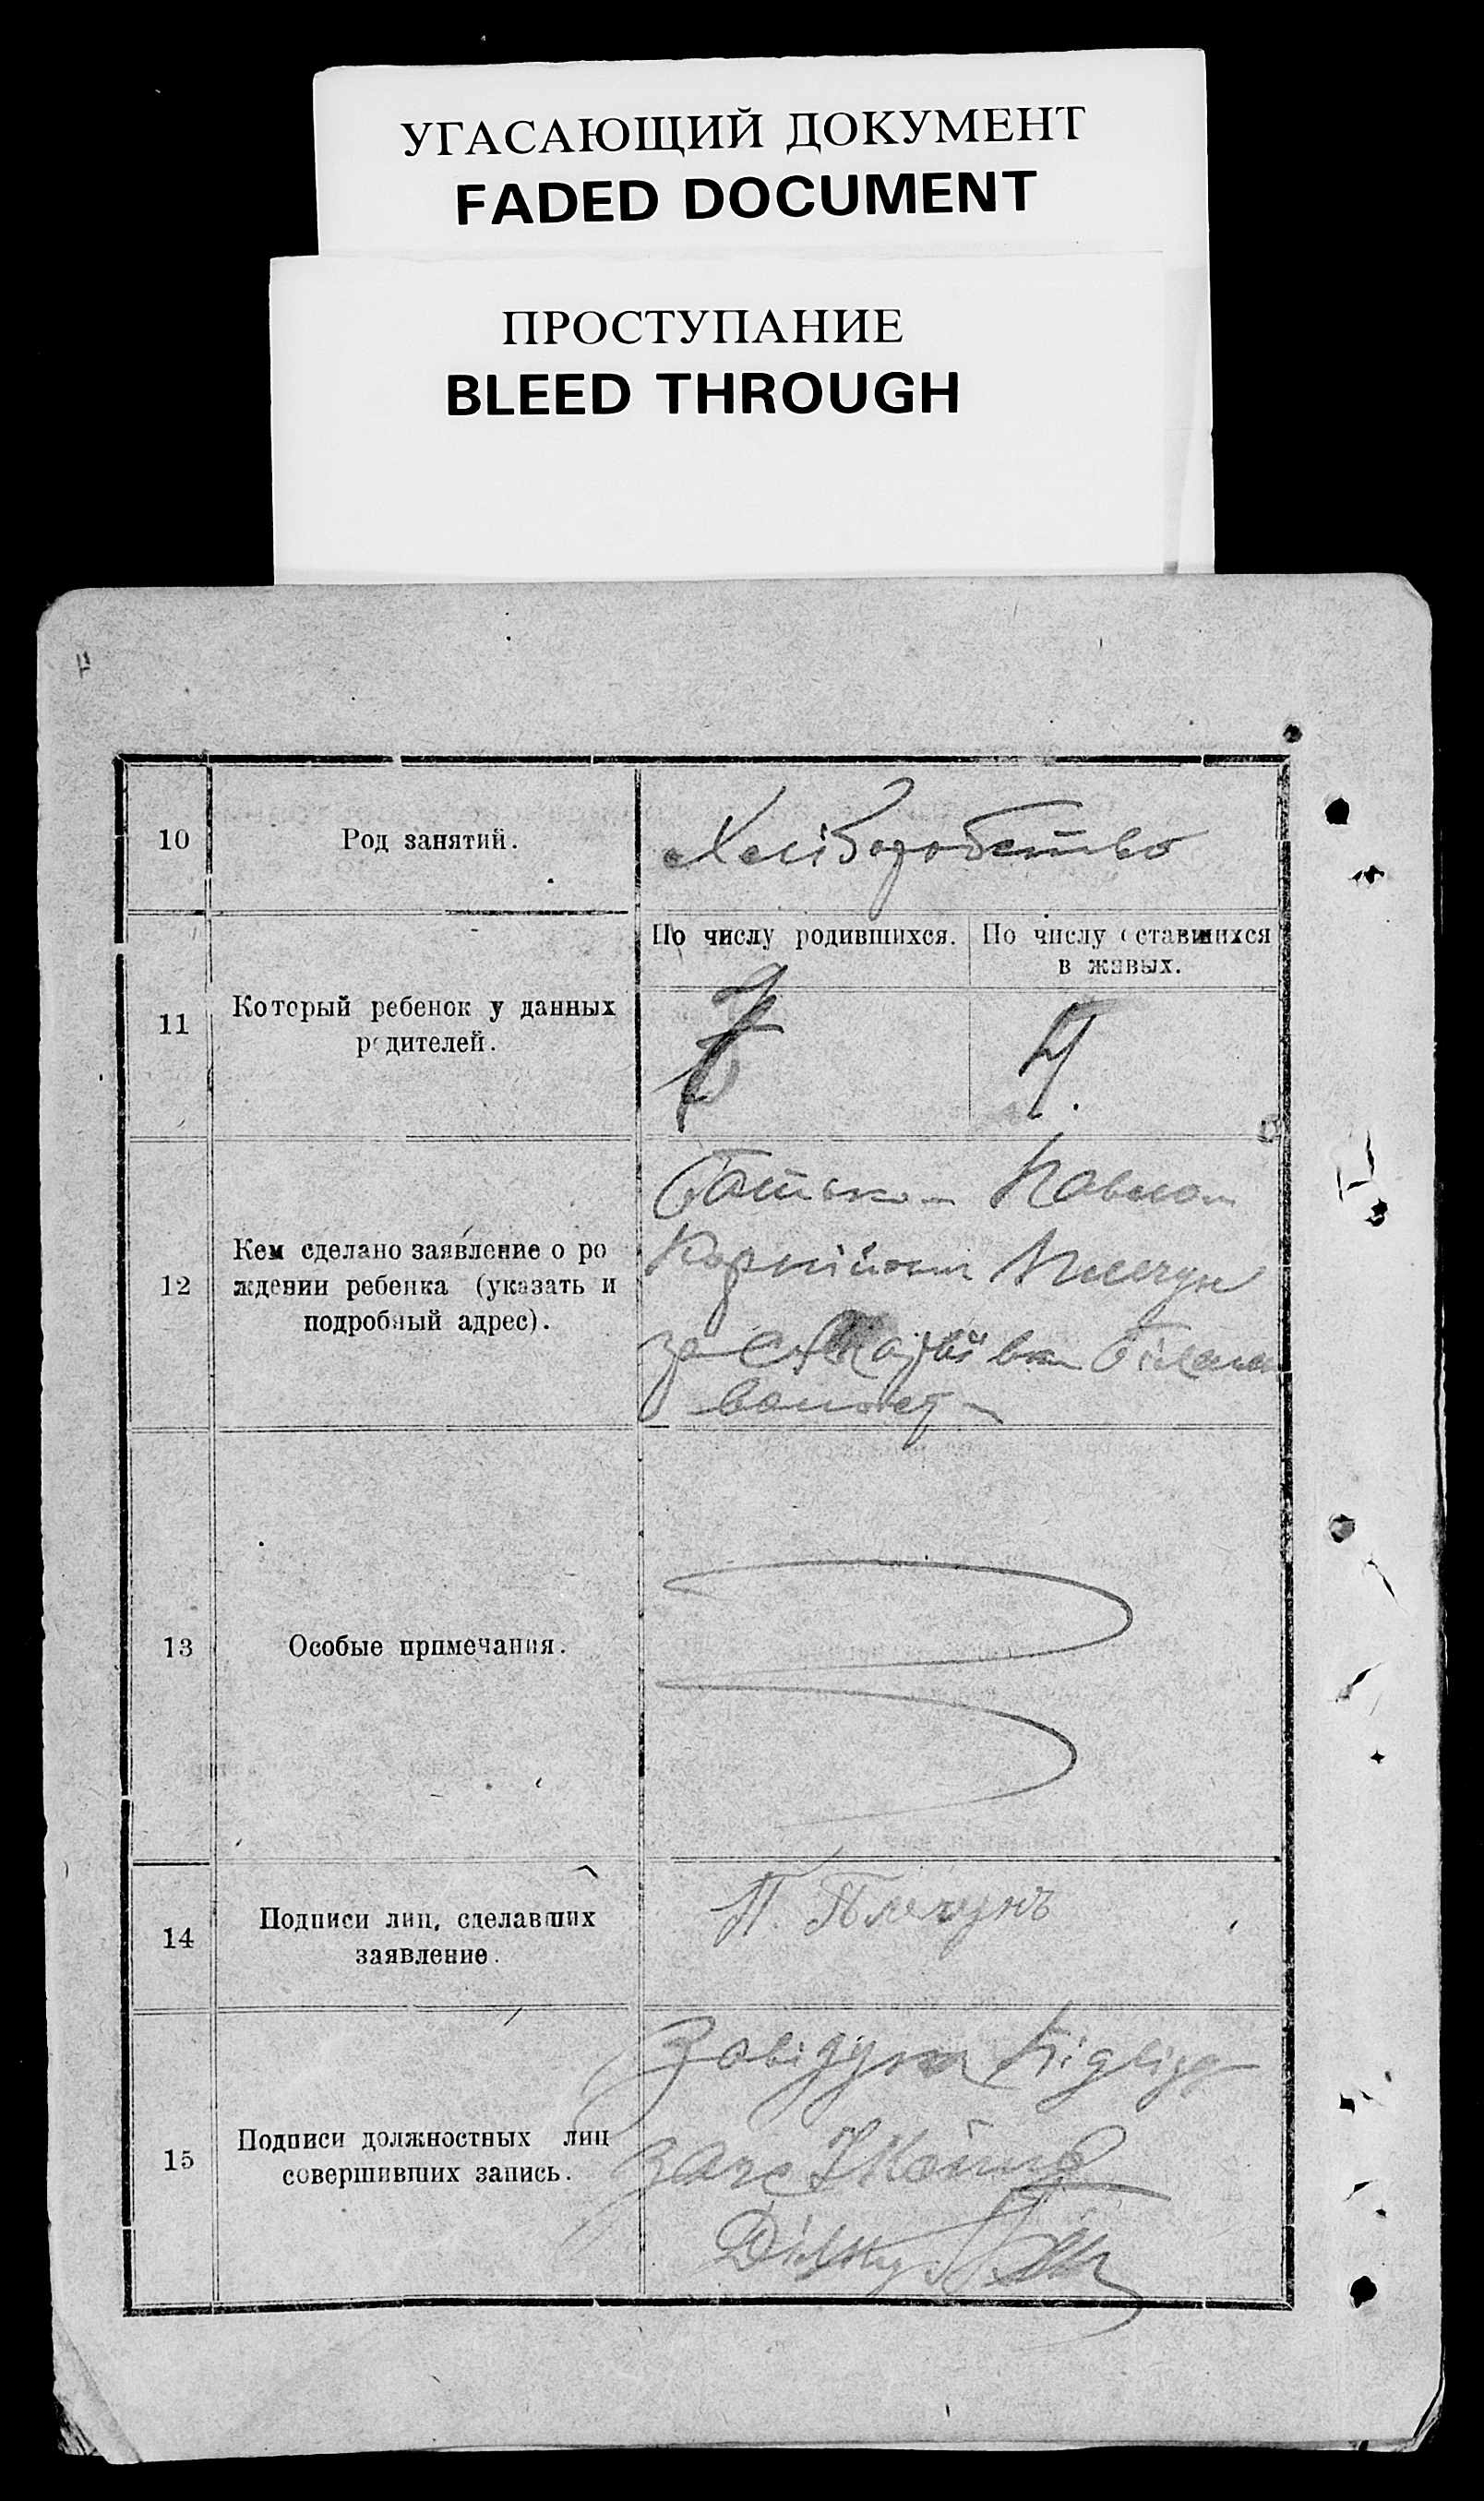 УГАСАЮЩИЙ ДОКУМЕНТ
FADED DOCUMENT
ПРОСТУПАНИЕ
BLEED THROUGH
10
Род занятий.
Хліборобство
11
Который ребенок у данных
родителей.
По числу родившихся.
По числу оставшихся
в живых.
7
4.
12
Кем сделано заявление о ро
ждении ребенка (указать и
подробный адрес).
Батько - Павло
Корнійович Плечун
13
Особые примечания.
14
Подписи лиц, сделавших
заявление.
П. Плечунъ
15
Подписи должностных лиц
совершивших запись.
Завідуюч Підвідд
Загс